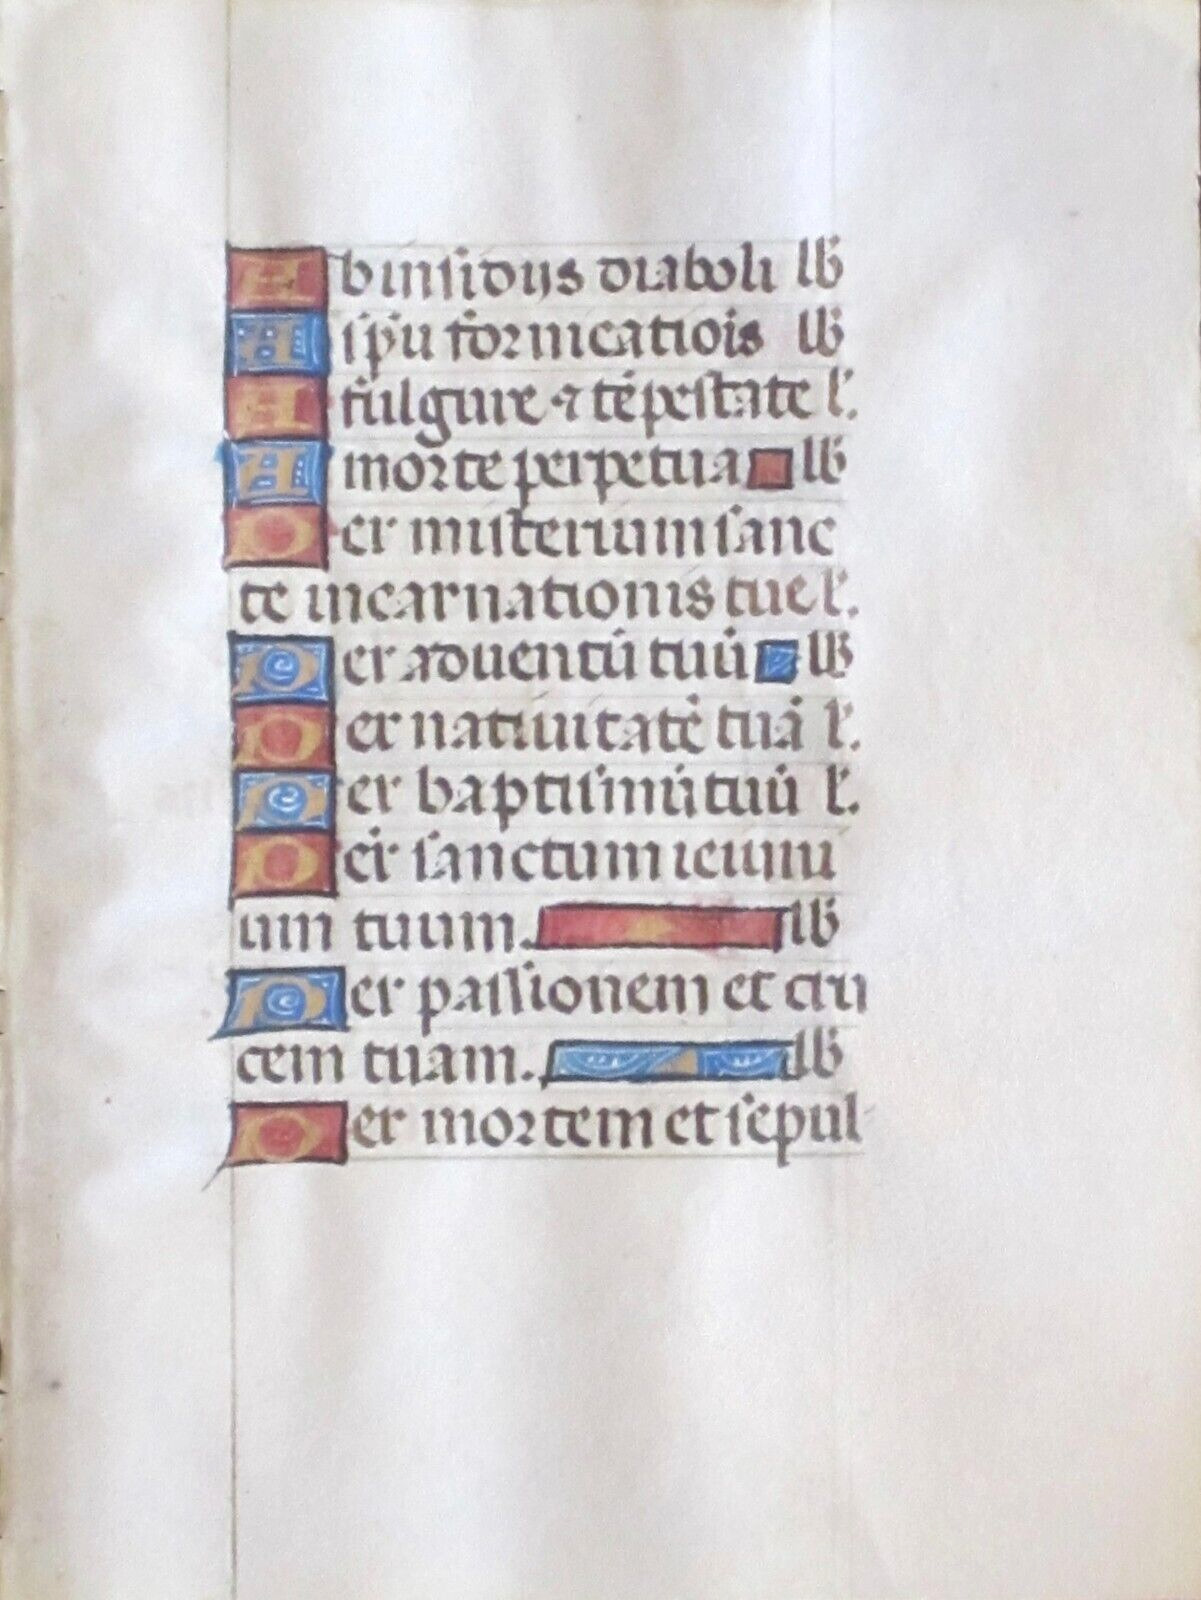 Ab insidijs diaboli lb̃
A sp̃u fornicatiõis lb̃
A fulgure ⁊ tẽpestate l̃.
A morte perpetua lb̃
Per misterium sanc
te incarnationis tue l̃.
Per aduentũ tuũ lb̃
Per natiuitatẽ tuã l̃.
Per baptismũ tuũ l̃.
Per sanctum ieiuni
um tuum. lb̃
Per passionem et cru
cem tuam. lb̃
Per mortem et sepul-